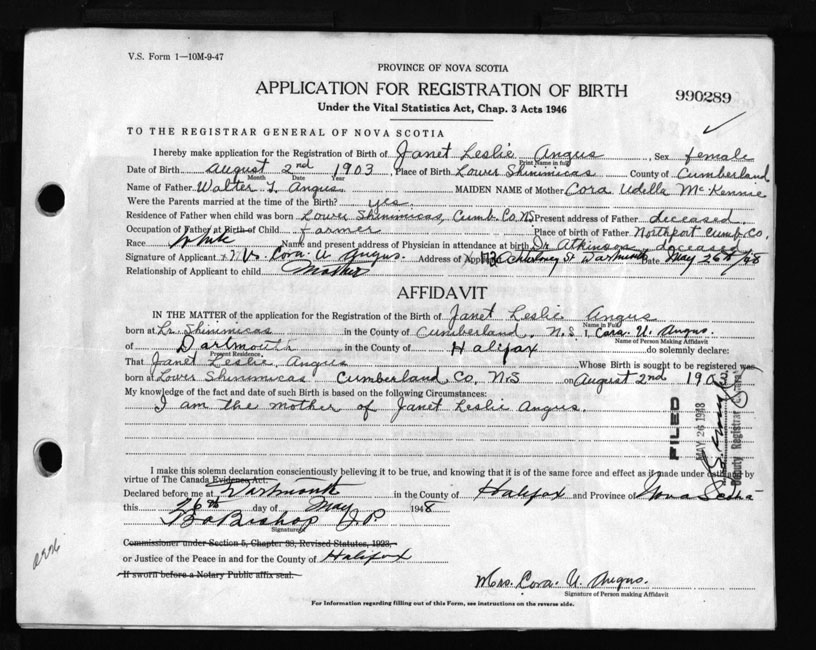 V.S. Form 1—10M-9-47
PROVINCE OF NOVA SCOTIA
APPLICATION FOR REGISTRATION OF BIRTH
990289
Under the Vital Statistics Act, Chap. 3 Acts 1946
TO THE REGISTRAR GENERAL OF NOVA SCOTIA
I hereby make application for the Registration of Birth of Janet Leslie Angus, Sex female
Print Name in full
Date of Birth August 2nd 1903, Place of Birth Lower Shinimicas County of Cumberland
Month Date Year
Name of Father Walter Angus MAIDEN NAME of Mother Cora Udella McKennie
Were the Parents married at the time of the Birth? yes.
Residence of Father when child was born Lower Shinimicas, Cumb. Co. NS Present address of Father deceased.
Occupation of Father at Birth of Child farmer Place of birth of Father Northport Cumb. Co.
Race White Name and present address of Physician in attendance at birth Dr Atkinson, deceased
Signature of Applicant Mrs. Cora U Angus. Address of St Dartmouth Date May 26th/48
Relationship of Applicant to child Mother
AFFIDAVIT
IN THE MATTER of the application for the Registration of the Birth of Janet Leslie Angus
Name in Full
born at Lr. Shinimicas in the County of Cumberland, N.S. I, Cora. U. Angus.
Name of Person Making Affidavit
of Dartmouth in the County of Halifax do solemnly declare:
Present Residence
That Janet Leslie Angus Whose Birth is sought to be registered was
born at Lower Shinimicas Cumberland Co. N.S on August 2nd 1903
My knowledge of the fact and date of such Birth is based on the following Circumstances:
I am the mother of Janet Leslie Angus.
FILED
MAY 26 1948
Deputy Registrar
I make this solemn declaration conscientiously believing it to be true, and knowing that it is of the same force and effect as if made under oath by
virtue of The Canada Evidence Act.
Declared before me at Dartmouth in the County of Halifax and Province of Nova Scotia
this 26th day of May 1948
Bishop J.P.
Signature
Commissioner under Section 5, Chapter 38, Revised Statutes, 1923,
or Justice of the Peace in and for the County of Halifax
If sworn before a Notary Public affix seal.
Mrs. Cora. U. Angus.
Signature of Person making Affidavit
For information regarding filling out of this Form, see instructions on the reverse side.